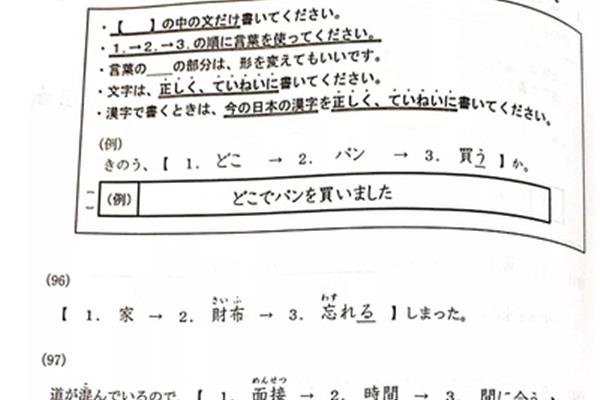 ・【　　】の中の文だけ書いてください。
・1.→2.→3.の順に言葉を使ってください。
・言葉の＿＿の部分は、形を変えてもいいです。
・文字は、正しく、ていねいに書いてください。
・漢字で書くときは、今の日本の漢字を正しく、ていねいに書いてください。
(例)
きのう、【 1. どこ → 2. パン → 3. 買う 】か。
(例) どこでパンを買いました
(96)
さいふ わす
【 1. 家 → 2. 財布 → 3. 忘れる 】しまった。
(97)
めんせつ
道が混んでいるので、【 1. 面接 → 2. 時間 → 3. 間に合う